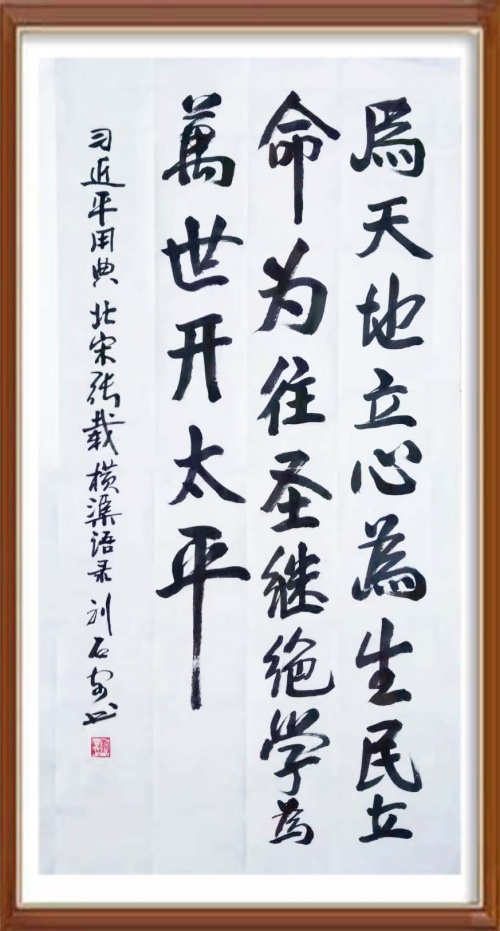 為天地立心為生民立
命为往圣继绝学為
萬世开太平
习近平用典 北宋张载横渠语录 刘石安书